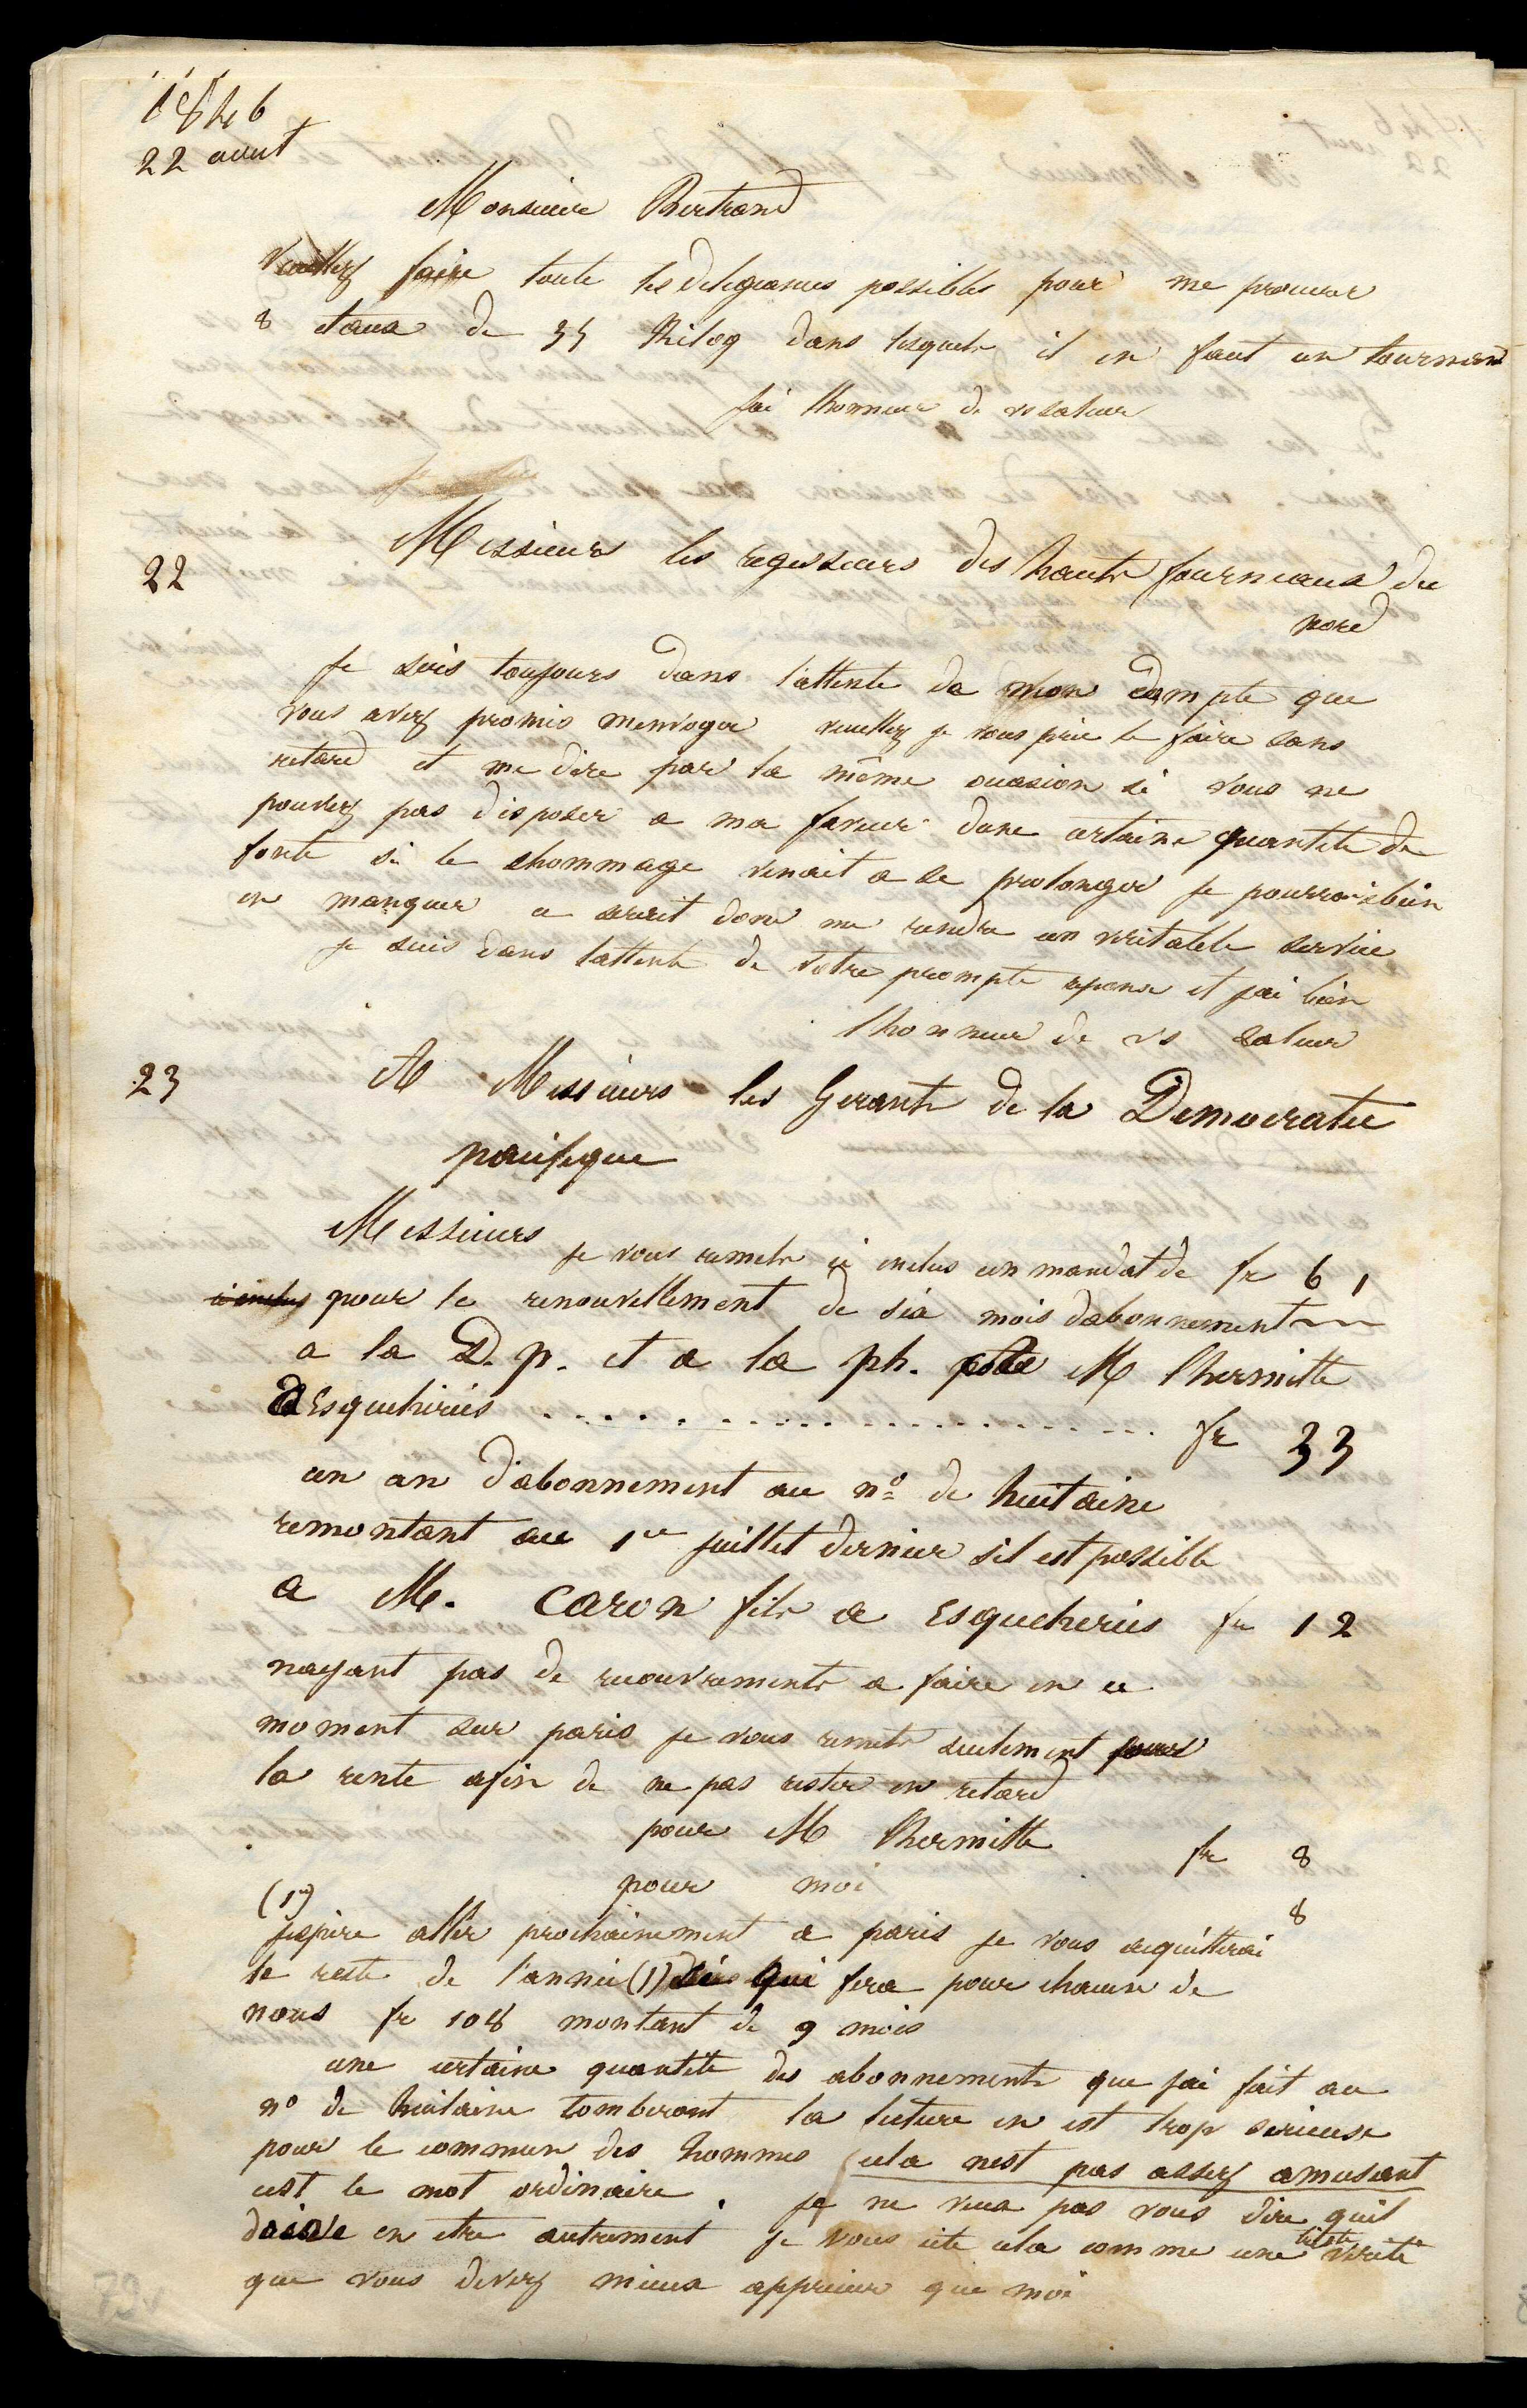 1846
22 aout
Monsieur Bertrand
Veuillez faire toute les deligeances possibles pour me procurer
8 etaux de 35 Kilog dans lesquels il en faut un tournant
jai lhonneur de vs saluer
22
Messieurs les regisseurs des hauts fourneaux du
nord
Je suis toujours dans l'attente de mon compte que
vous avez promis menvoyer veuillez je vous prie le faire sans
retard et me dire par la même occasion si vous ne
pouvez pas disposer a ma faveur dune certaine quantite de
fonte si le chommage venait a se prolonger je pourrais bien
en manquer ce serait donc me rendre un veritable service
je suis dans lattente de votre prompte reponse et jai bien
lhonneur de vs saluer
23
A Messieurs les Gerants de la Democratie
pacifique
Messieurs
je vous remets ci inclus un mandat de fr 61
ci inclus pour le renouvellement de six mois dabonnement
a la D. p. et a la ph. M lhermitte
d Esqueheries . . . . . . . . . . . . . . . . . . . . fr 33
un an d'abonnement au n° de huitaine
remontant au 1er juillet dernier sil est possible
a M. Caron fils a Esqueheries fr 12
nayant pas de recouvrements a faire en ce
moment sur paris je vous remets seulement pour
la rente afin de ne pas rester en retard
pour M lhermitte fr 8
pour moi 8
(1)
jespere aller prochainement a paris je vous acquitterai
le reste de l'année (1) qui fera pour chacun de
nous fr 108 montant de 9 mois
une certaine quantité des abonnements que jai fait au
n° de huitaine tomberont la lecture en est trop serieuse
pour le commun des hommes cela nest pas assez amusant
cest le mot ordinaire. je ne veux pas vous dire quil
doive en etre autrement je vous cite cela comme une triste verité
que vous devez mieux apprecier que moi